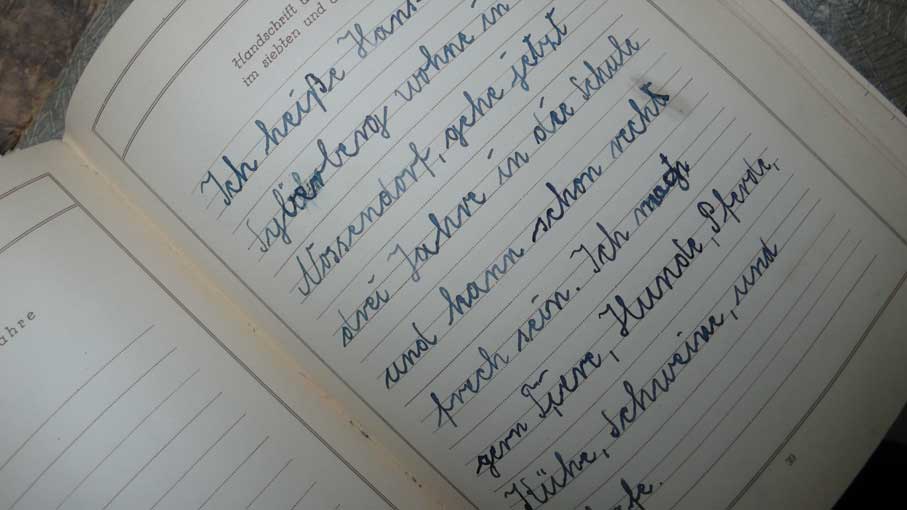 Handschrift
im siebten und
Ich heiße Hans-
Sylberberg wohne in
Nossendorf, gehe jetzt
drei Jahre in die Schule
und kann schon recht
frech sein. Ich mag
gern Tiere, Hunde, Pferde,
Kühe, Schweine, und
ahre
39